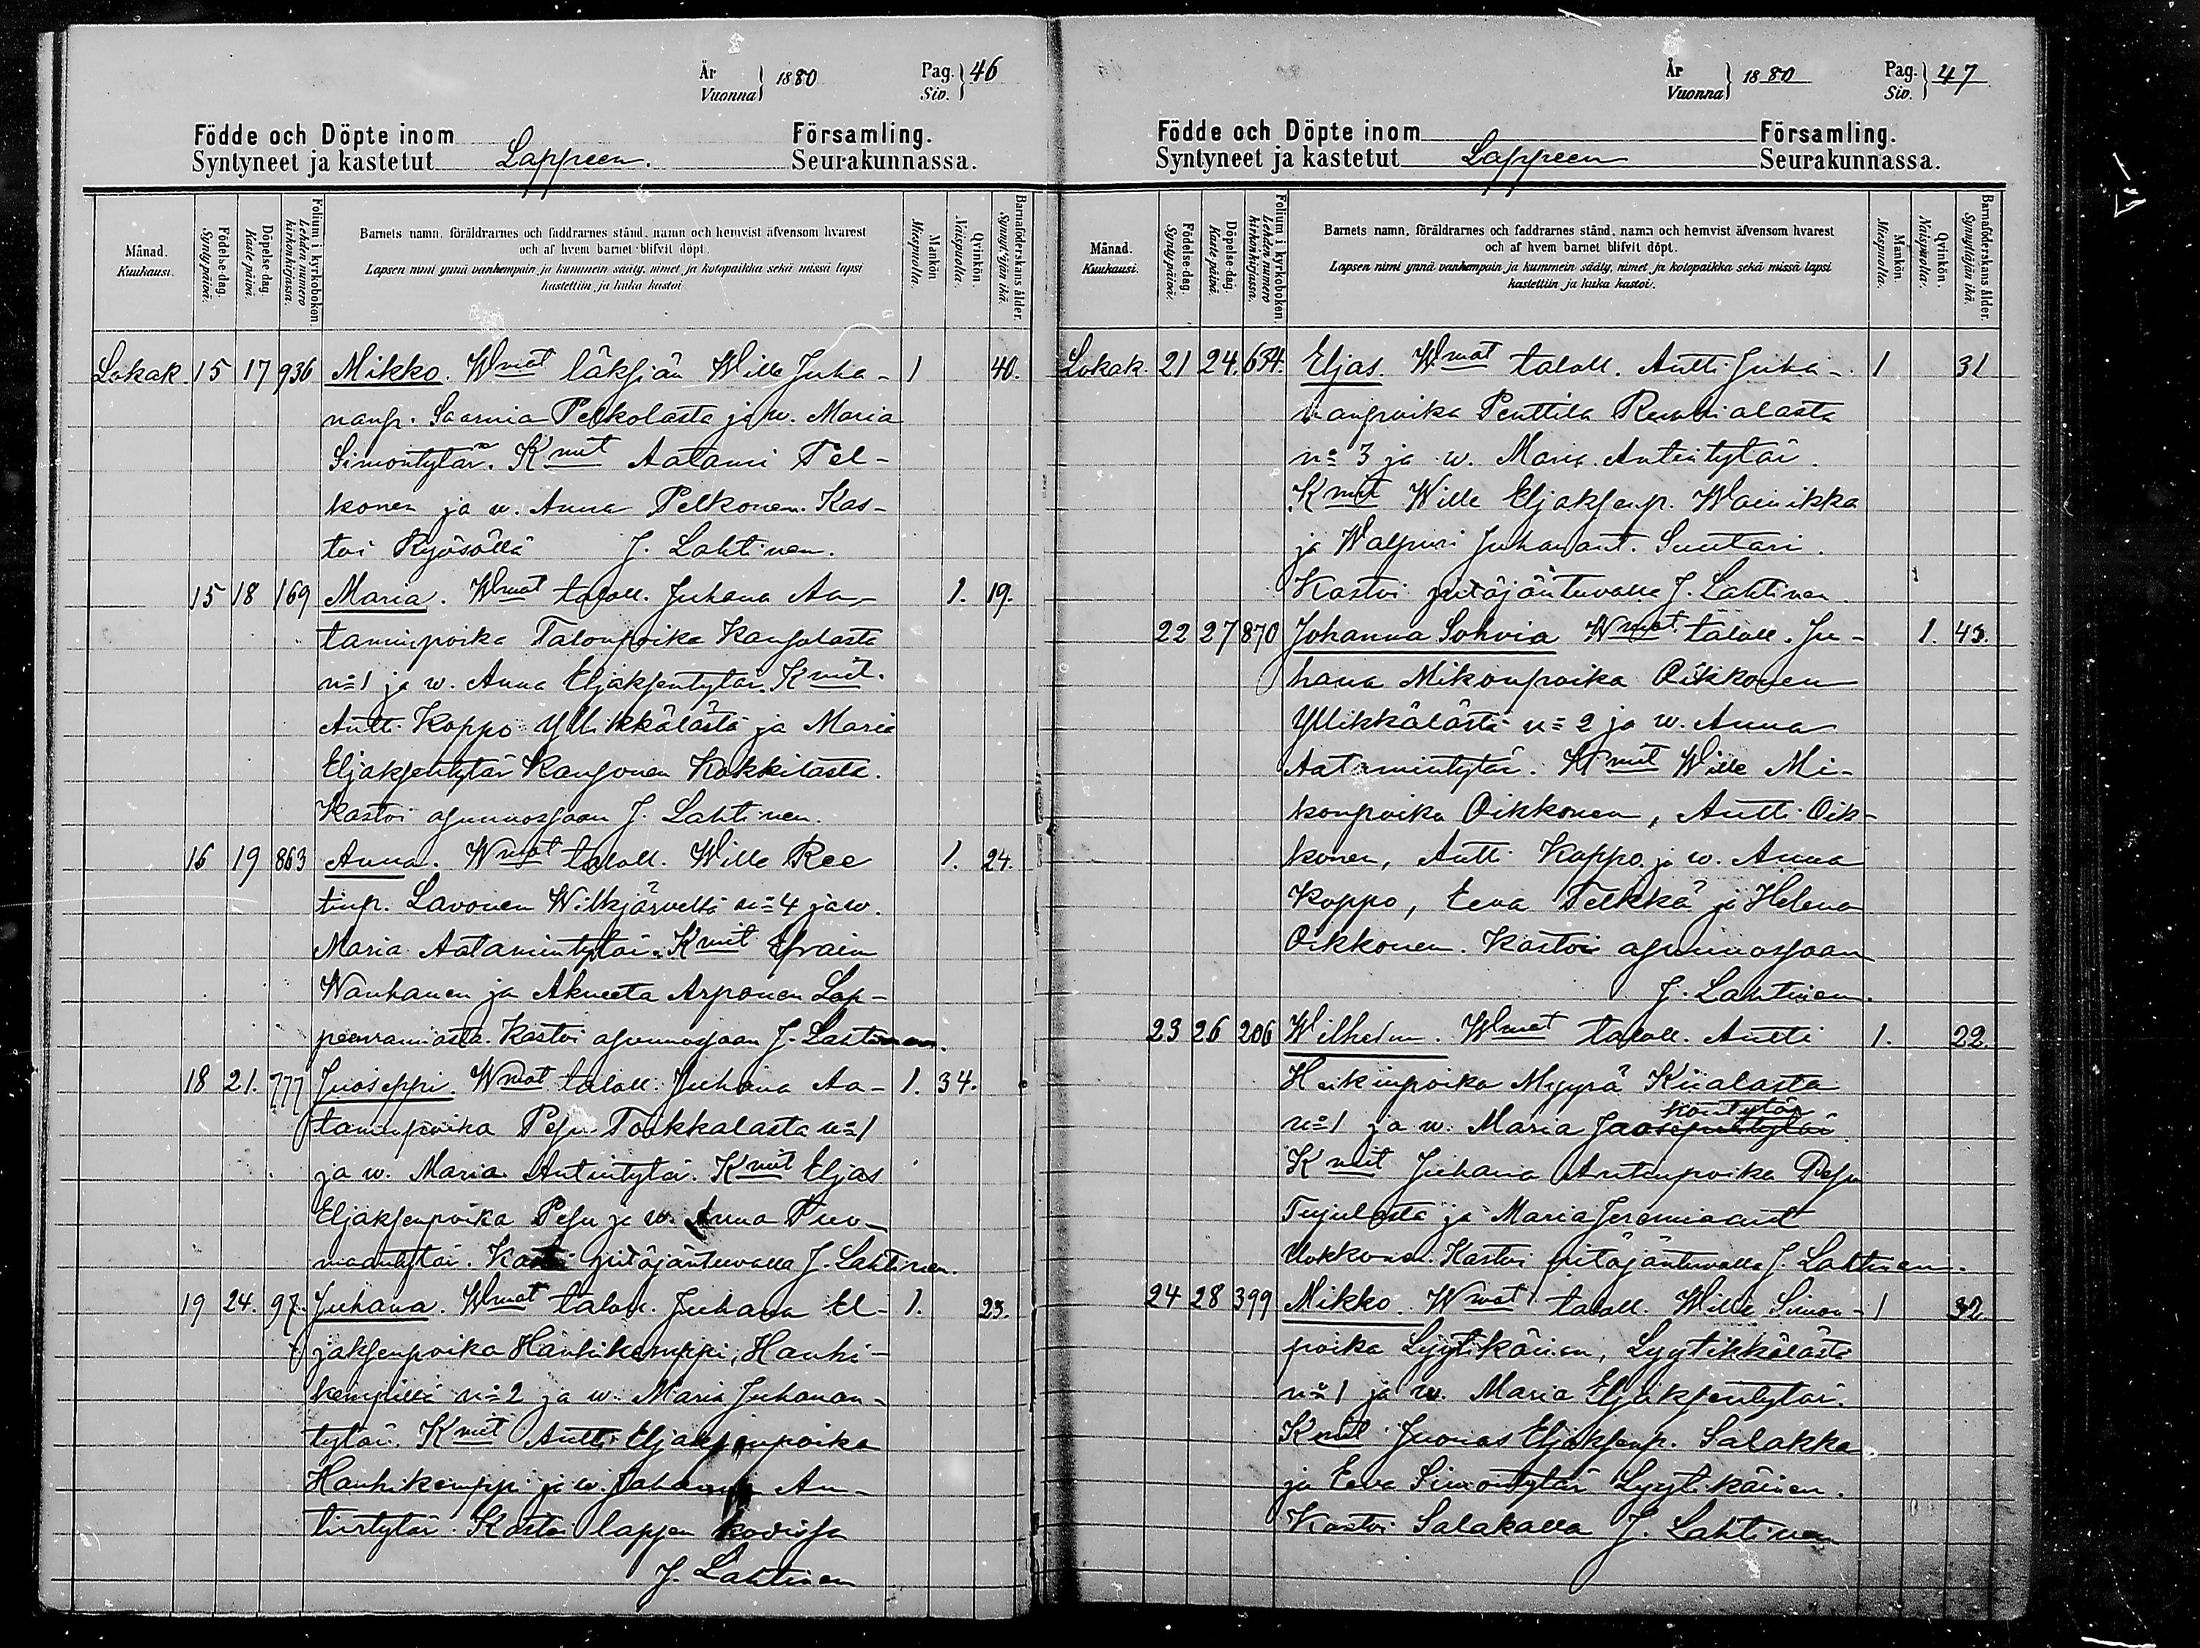 År
Vuonna } 1880
Pag.
Siv. } 46
Födde och Döpte inom Församling.
Syntyneet ja kastetut Lappeen. Seurakunnassa.
Månad. Kuukausi.
Födelse-dag. Syntypäivä.
Döpelse-dag. Kaste päivä.
Folium i kyrkoboken. Lehden numero kirkonkirjassa.
Barnets namn, föräldrarnes och faddrarnes stånd, namn och hemvist äfvensom hvarest
och af hvem barnet blifvit döpt.
Lapsen nimi ynnä vanhempain ja kummein sääty, nimet ja kotopaikka sekä missä lapsi
kastettiin ja kuka kastoi
Mankön. Miespuolia.
Qvinkön. Naispuolia.
Barnaföderskans ålder. Synnyttäjän ikä.
Lokak. 15 17 936 Mikko. Wmat läksiän Wille Juha- 1 40.
nanp. Saarnia Pelkolasta ja w. Maria
Simontytär. Kmit Aatami Pel-
konen ja w. Anna Pelkonen. Kas-
toi Kyösöllä J. Lahtinen.
15 18 169 Maria. Wmat taloll. Juhana Aa- 1. 19.
taminpoika Talonpoika Kansolasta
n=1 ja w. Anna Eljaksentytär. Kmit.
Antti Koppo Yllikkälästä ja Maria
Eljaksentytär Kansonen Kokkilasta.
Kastoi asunnossaan J. Lahtinen.
16 19 863 Anna. Wmat taloll. Wille Ree 1. 24.
tinp. Lavonen Wilkjärveltä n=4 ja w.
Maria Aatamintytär. Kmit Efraim
Wanhanen ja Akneeta Arponen Lap-
peenrannasta. Kastoi asunnossaan J. Lahtinen.
18 21. 777 Juoseppi. Wmat taloll. Juhana Aa- 1. 34.
taminpoika Pesu Toikkalasta n=1
ja w. Maria Antintytär. Kmit Eljas
Eljaksenpoika Pesu ja w. Anna Tuo-
maantytär. Kastoi pitäjäntuvalla J. Lahtinen.
19 24. 97. Juhana. Wmat taloll. Juhana El- 1. 23.
jaksenpoika Hanhikemppi, Hanhi-
kempillä n=2 ja w. Maria Juhanan-
tytär. Kmit Antti Eljaksenpoika
Hanhikemppi ja w. An-
tintytär. Kastoi lapsen kodissa
J. Lahtinen
År
Vuonna } 1880
Pag.
Siv. } 47
Födde och Döpte inom Församling.
Syntyneet ja kastetut Lappeen Seurakunnassa.
Månad. Kuukausi.
Födelse-dag. Syntypäivä.
Döpelse-dag. Kaste päivä.
Folium i kyrkoboken. Lehden numero kirkonkirjassa.
Barnets namn, föräldrarnes och faddrarnes stånd, namn och hemvist äfvensom hvarest
och af hvem barnet blifvit döpt.
Lapsen nimi ynnä vanhempain ja kummein sääty, nimet ja kotopaikka sekä missä lapsi
kastettiin ja kuka kastoi.
Mankön. Miespuolia.
Qvinkön. Naispuolia.
Barnaföderskans ålder. Synnyttäjän ikä.
Lokak 21 24. 634. Eljas. Wmat taloll. Antti Juha- 1 31
nanpoika Penttilä
n=3 ja w. Maria Antintytär.
Kmit Wille Eljaksenp. Wainikka
ja Walpuri Juhanant. Suutari.
Kastoi pitäjäntuvalla J. Lahtinen
22 27 870 Johanna Sohvia Wmat taloll. Ju- 1. 43.
hana Mikonpoika Oikkonen
Yllikkälästä n=2 ja w. Anna
Aatamintytär. Kmit Wille Mi-
konpoika Oikkonen, Antti Oik-
konen, Antti Koppo ja w. Anna
Koppo, Eeva Telkkä ja Helena
Oikkonen. Kastoi asunnossaan
J. Lahtinen.
23 26 206 Wilhelm. Wmat taloll. Antti 1. 22.
Heikinpoika Myyrä Kiialasta
kontytär
n=1 ja w. Maria Jaosepintytär.
Kmit Juhana Antinpoika Pesu
Tujulasta ja Maria Jeremiaant
Uokkonen. Kastoi pitäjäntuvalla J. Lahtinen.
24 28 399 Mikko. Wmat taloll. Wille Simon- 1 32
poika Lyytikäinen, Lyytikkälästä
n=1 ja w. Maria Eljaksentytär.
Kmit Juonas Eljaksenp. Salakka
ja Eeva Simontytär Lyytikäinen.
Kastoi Salakalla J. Lahtinen